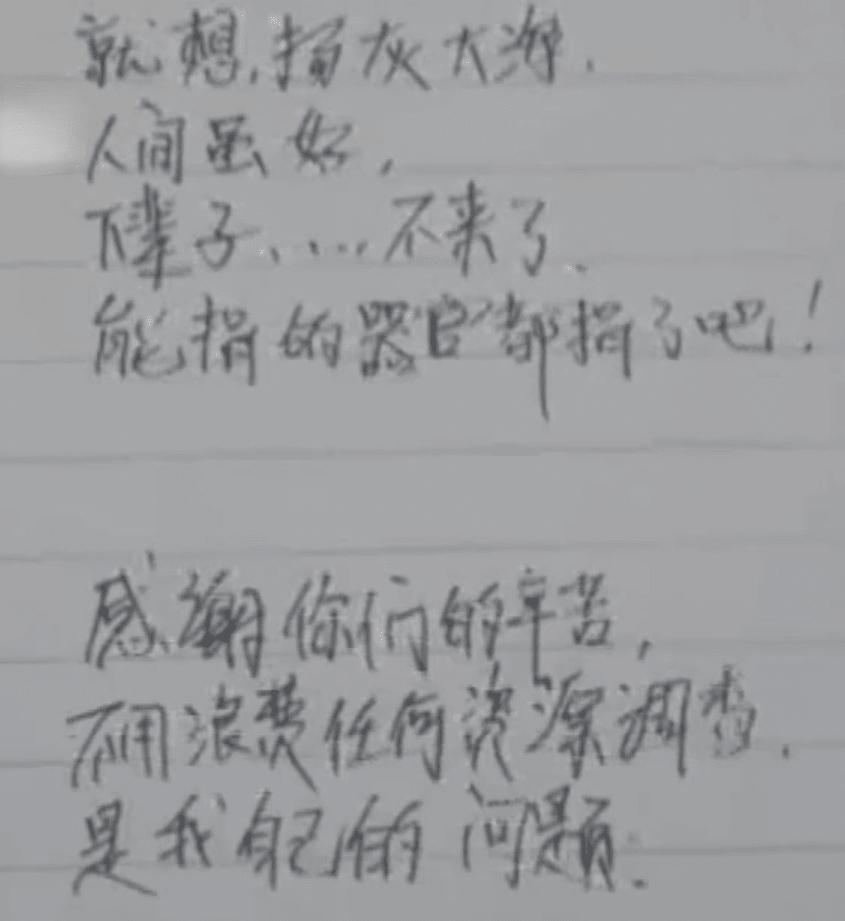 就想,扬灰大海.
人间虽好,
下辈子....不来了.
能捐的器官都捐了吧!
感谢你们的辛苦,
不用浪费任何资源调查.
是我自己的问题.